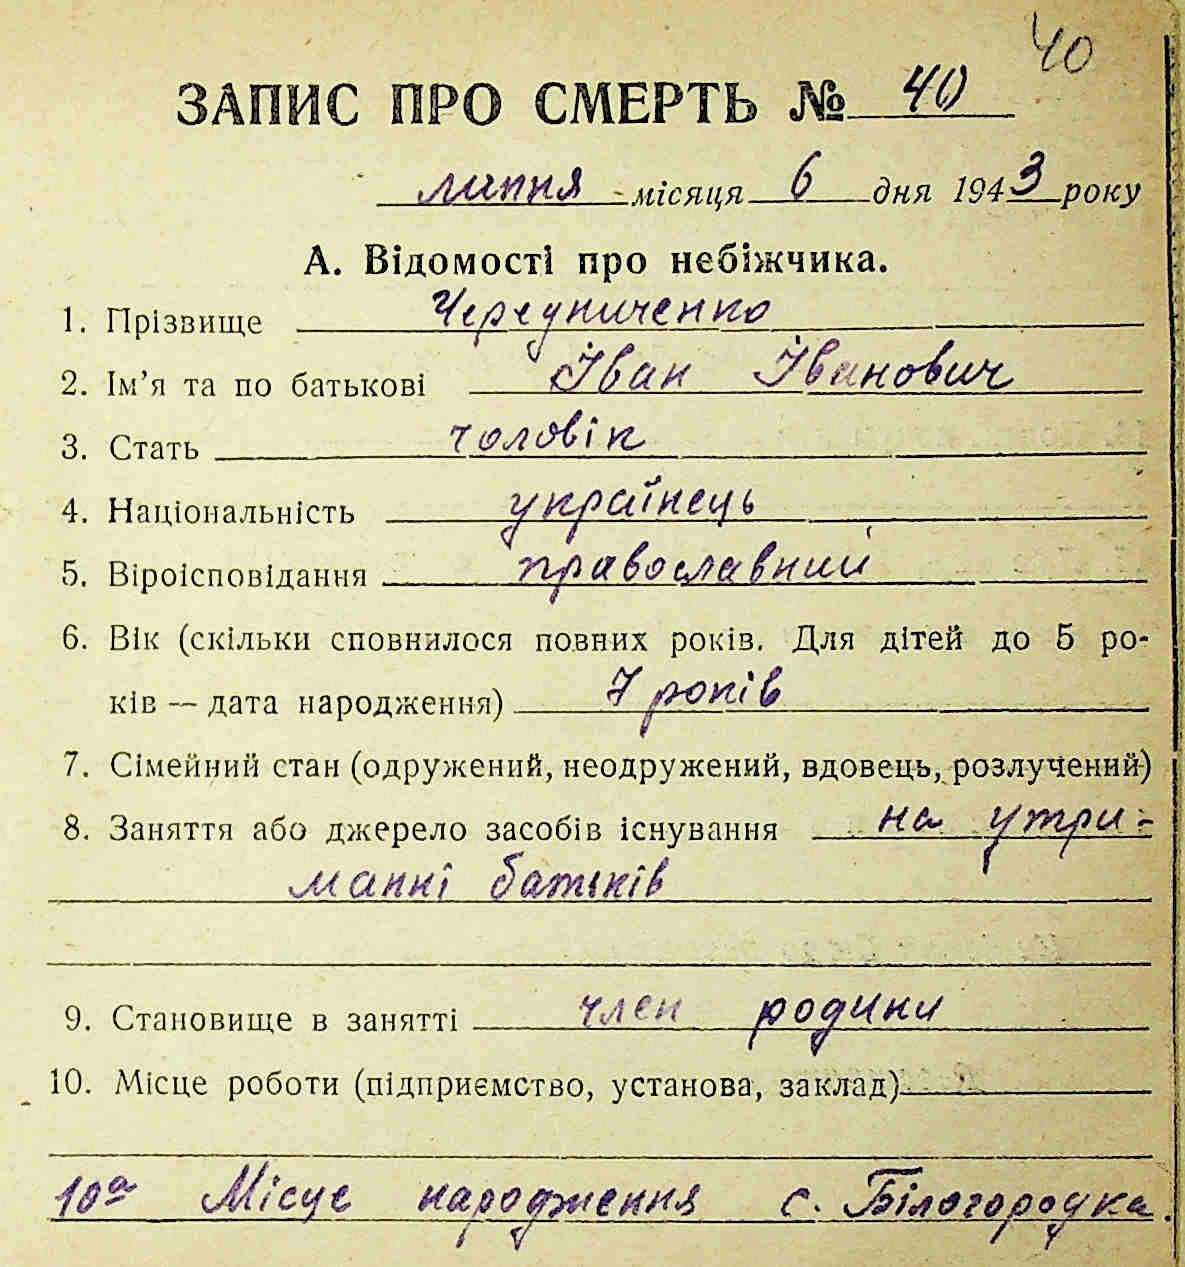 40
ЗАПИС ПРО СМЕРТЬ № 40
липня місяця 6 дня 1943 року
А. Відомості про небіжчика.
1. Прізвище Чередниченко
2. Ім’я та по батькові Іван Іванович
3. Стать чоловік
4. Національність українець
5. Віроісповідання православний
6. Вік (скільки сповнилося повних років. Для дітей до 5 ро-
ків — дата народження) 7 років
7. Сімейний стан (одружений, неодружений, вдовець, розлучений)
8. Заняття або джерело засобів існування на утри-
манні батьків
9. Становище в занятті член родини
10. Місце роботи (підприємство, установа, заклад)
10а Місце народження с. Білогородка.